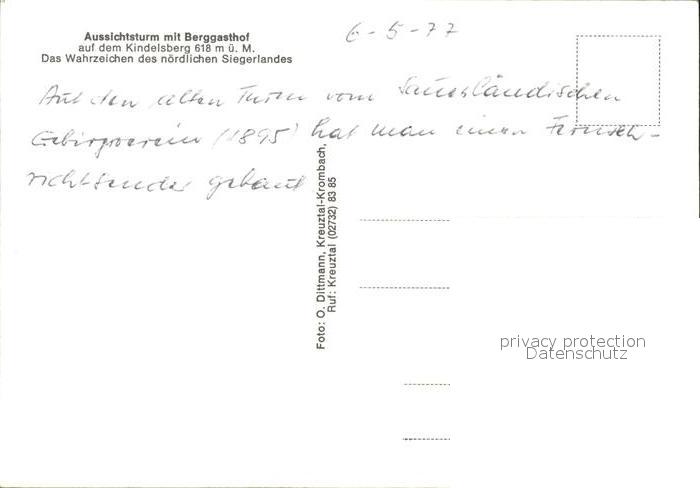 Aussichtsturm mit Berggasthof
auf dem Kindelsberg 618 m ü. M.
Das Wahrzeichen des nördlichen Siegerlandes
6-5-77
Auf den alten Turm vom Sauerländischen
Gebirgsverein (1895) hat man einen Fernseh-
richtsender gebaut
Foto: O. Dittmann, Kreuztal-Krombach,
Ruf: Kreuztal (02732) 83 85
privacy protection
Datenschutz